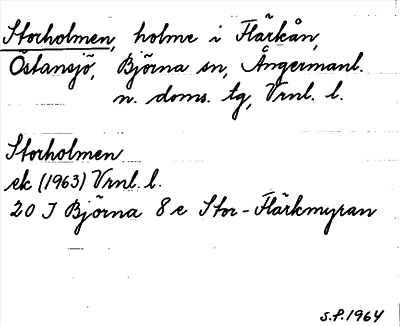 Storholmen, holme i Flärkån,
Östansjö, Björna sn, Ångermanl.
n. doms. lg, Vrnl. l.
Storholmen
ek (1963) Vrnl. l.
20 J Björna 8 e Stor-Flärkmyran
S.P. 1964